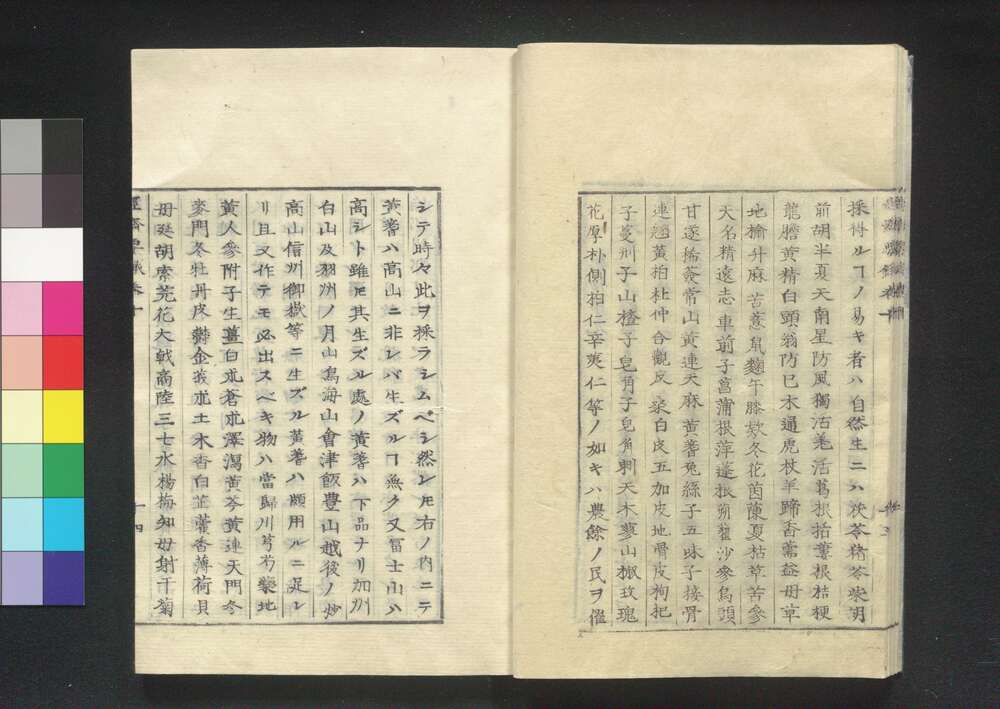 採得ルヿノ易キ者ハ自然生ニハ茯苓猪苓柴胡
前胡半夏天南星防風獨活羗活葛根括蔞根桔梗
龍膽黄精白頭翁防巳木通虎杖羊蹄香薷益母草
地榆升麻苦薏鼠麹牛膝欵冬花茵陳夏枯草苦參
天名精遠志車前子菖蒲根萍蓬根蒴藋沙參烏頭
甘遂栝蔞常山黄連天麻黄蓍兔絲子五味子接骨
連翹黄柏杜仲合歡皮桑白皮五加皮地骨皮枸杞
子蔓荊子山楂子皂角子皂角刺天木蓼山椒玫瑰
花厚朴側柏仁辛夷仁等ノ如キハ農餘ノ民ヲ催
シテ時々此ヲ採ラシムベシ然レ𪜈右ノ内ニテ
黄蓍ハ高山ニ非レバ生ズルヿ無ク又冨士山ハ
高シト雖𪜈其生ズル處ノ黄蓍ハ下品ナリ加州
白山及羽州ノ月山鳥海山會津飯豊山越後ノ妙
高山信州御嶽等ニ生ズル黄蓍ハ頗用ルニ足レ
リ且又作テモ必出スベキ物ハ當歸川芎芍藥地
黄人參附子生薑白朮蒼朮澤瀉黄芩黄連天門冬
麥門冬牡丹皮鬱金莪朮土木香白芷藿香薄荷貝
母延胡索芫花大戟商陸三七水楊梅知母射干菊
十四